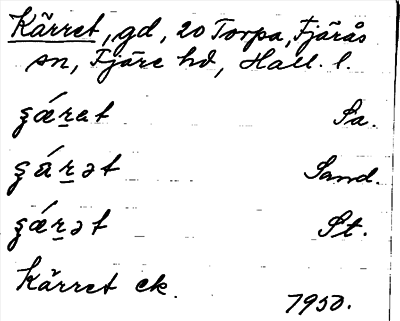 Kärret, gd, 20 Torpa, Fjärås
sn, Fjäre hd, Hall. l.
ʂǽṟat Sa.
ʂáṟət Sand.
ʂǽṟət St.
Kärret ek.
1950.